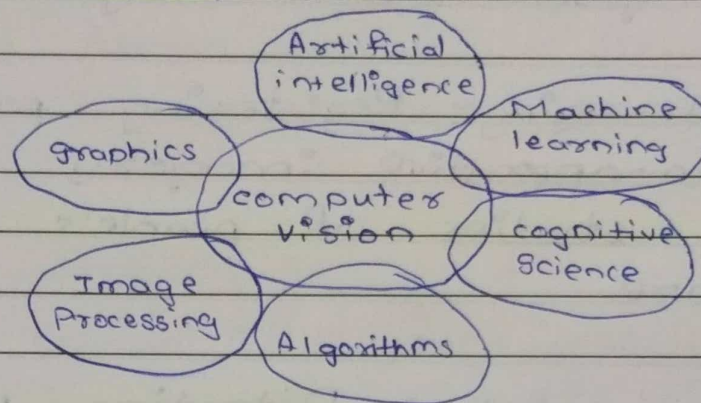 Artificial
intelligence
Machine
learning
graphics
computer
vision
cognitive
Science
Image
Processing
Algorithms